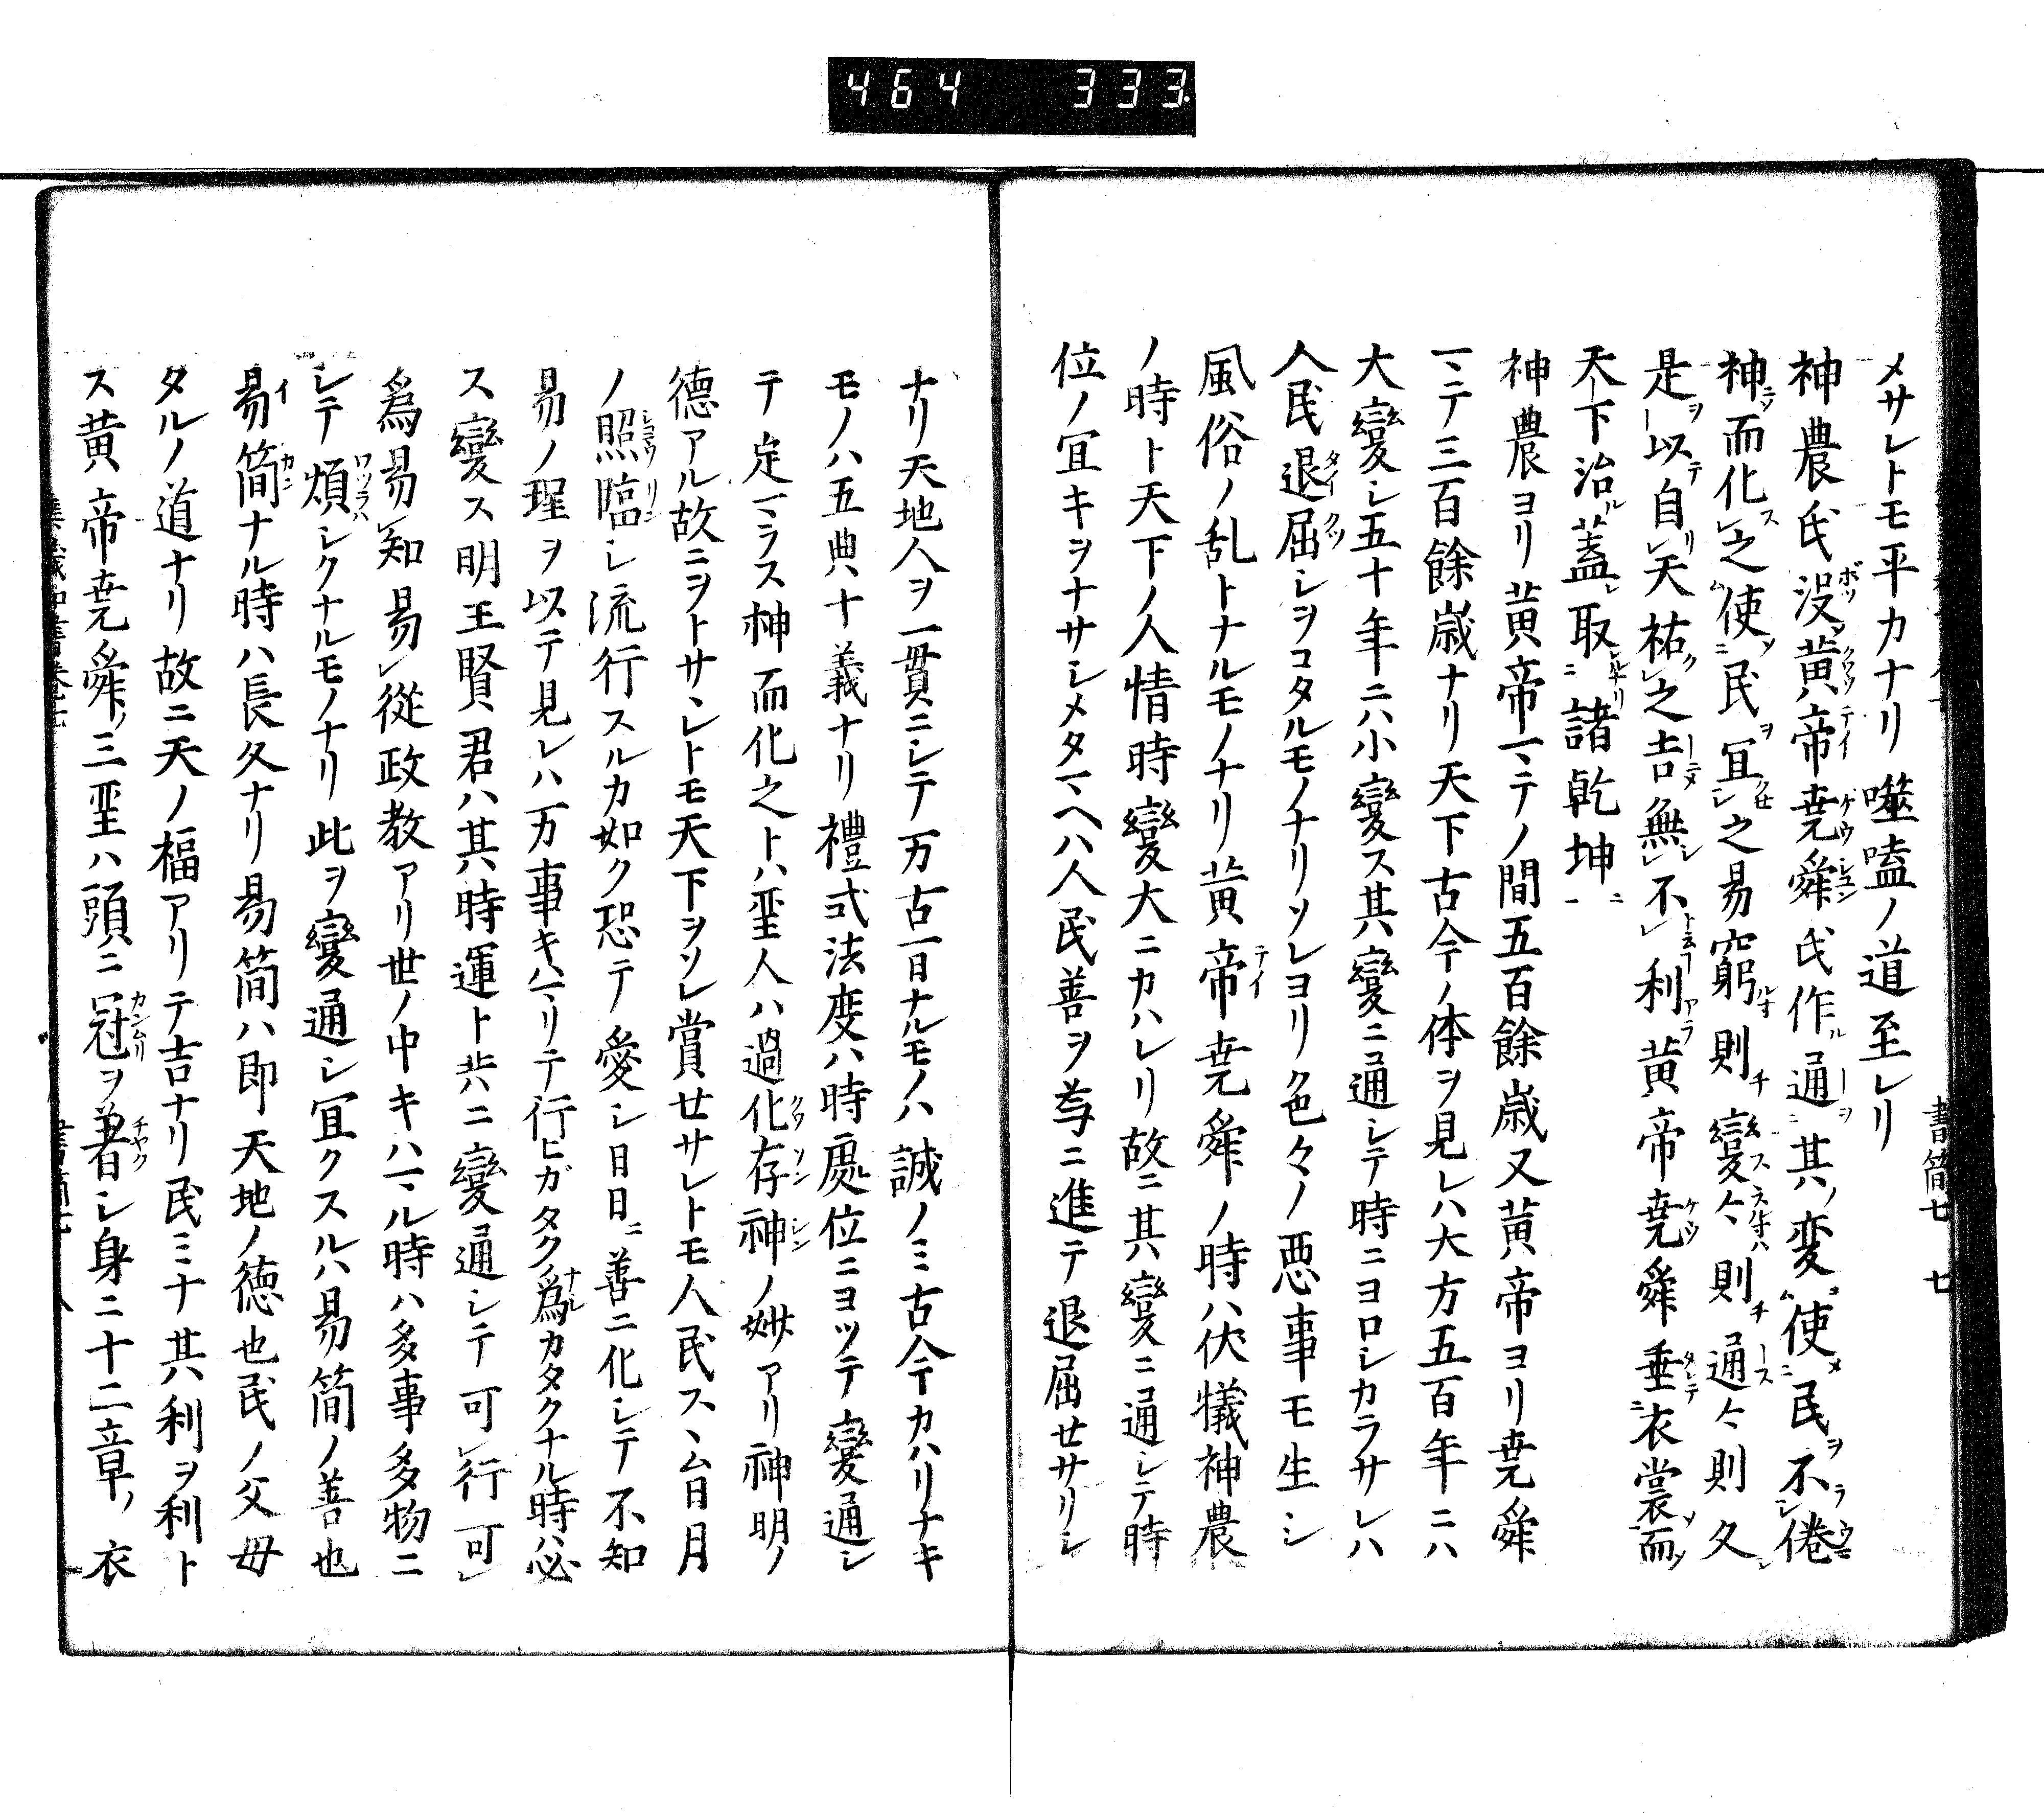 464 333
書簡七 七
メサレトモ平カナリ噬嗑ノ道至レリ
神農氏没黄帝堯舜氏作通其ノ変使民不倦
神而化之使民宜之易窮則變々則通々則久
是以自天祐之吉無不利黄帝堯舜垂衣裳而
天下治蓋取諸乾坤
神農ヨリ黄帝マテノ間五百餘歳又黄帝ヨリ堯舜
マテ三百餘歳ナリ天下古今ノ体ヲ見レハ大方五百年ニハ
大變シ五十年ニハ小變ス其變ニ通シテ時ニヨロシカラサレハ
人民退屈シヲコタルモノナリソレヨリ色々ノ悪事モ生シ
風俗ノ乱トナルモノナリ黄帝堯舜ノ時ハ伏犠神農
ノ時ト天下ノ人情時變大ニカハレリ故ニ其變ニ通シテ時
位ノ宜キヲナサシメタマヘハ人民善ヲ為ニ進テ退屈セサリシ
ナリ天地人ヲ一貫ニシテ万古一日ナルモノハ誠ノミ古今カハリナキ
モノハ五典十義ナリ禮式法度ハ時處位ニヨツテ變通シ
テ定マラス神而化之トハ聖人ハ過化存神ノ妙アリ神明ノ
德アル故ニヲトサシレトモ天下ヲソレ賞セサレトモ人民スヽム日月
ノ照臨シ流行スルカ如ク恐テ愛シ日日ニ善ニ化シテ不知
易ノ理ヲ以テ見レハ万事キハマリテ行ヒガタク為カタクナル時ハ必
ス變ス明王賢君ハ其時運ト共ニ變通シテ可行可
爲易知易從政教アリ世ノ中キハマル時ハ多事多物ニ
シテ煩シクナルモノナリ此ヲ變通シ宜クスルハ易簡ノ善也
易簡ナル時ハ長久ナリ易簡ハ即天地ノ德也民ノ父母
タルノ道ナリ故ニ天ノ福アリテ吉ナリ民ミナ其利ヲ利ト
ス黄帝堯舜ノ三聖ハ頭ニ冠ヲ著シ身ニ十二章ノ衣